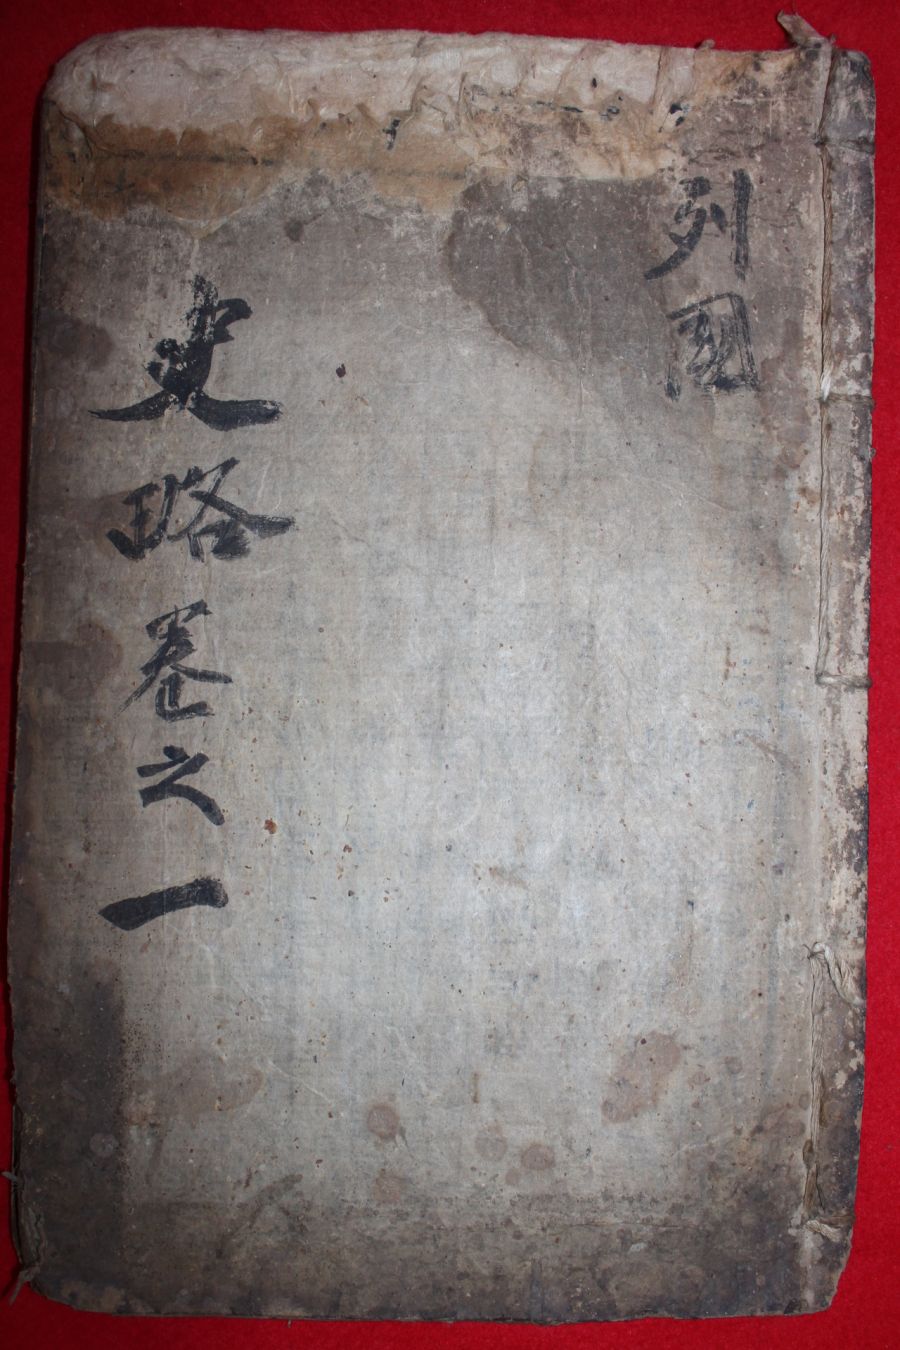 列國
史略卷之一